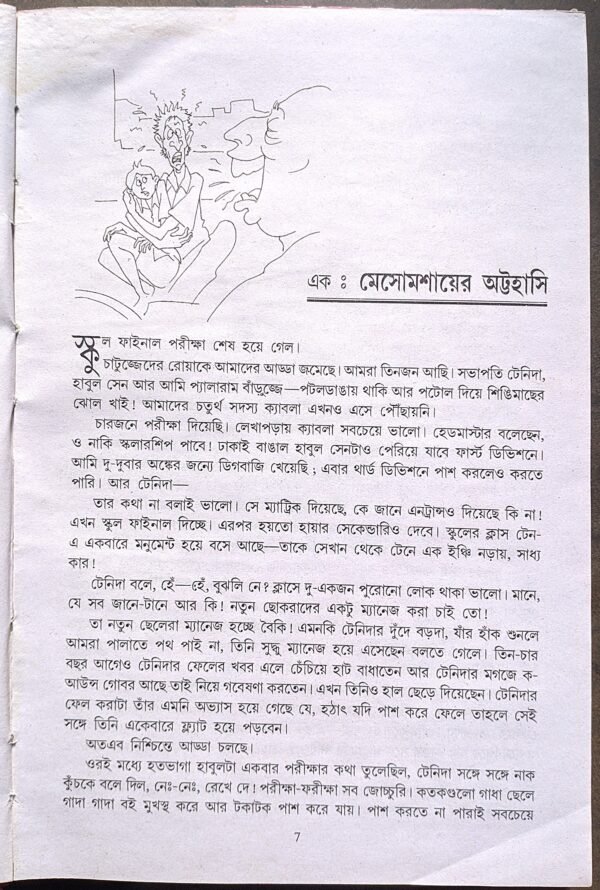 এক : মেসোমশায়ের অট্টহাসি
স্কুল ফাইনাল পরীক্ষা শেষ হয়ে গেল।
চাটুজ্জেদের রোয়াকে আমাদের আড্ডা জমেছে। আমরা তিনজন আছি। সভাপতি টেনিদা,
হাবুল সেন আর আমি প্যালারাম বাঁড়ুজ্জে—পটলডাঙায় থাকি আর পটোল দিয়ে শিঙিমাছের
ঝোল খাই! আমাদের চতুর্থ সদস্য ক্যাবলা এখনও এসে পৌঁছায়নি।
চারজনে পরীক্ষা দিয়েছি। লেখাপড়ায় ক্যাবলা সবচেয়ে ভালো। হেডমাস্টার বলেছেন,
ও নাকি স্কলারশিপ পাবে! ঢাকাই বাঙাল হাবুল সেনটাও পেরিয়ে যাবে ফার্স্ট ডিভিশনে।
আমি দু-দুবার অঙ্কের জন্যে ডিগবাজি খেয়েছি ; এবার থার্ড ডিভিশনে পাশ করলেও করতে
পারি। আর টেনিদা—
তার কথা না বলাই ভালো। সে ম্যাট্রিক দিয়েছে, কে জানে এনট্রান্সও দিয়েছে কি না!
এখন স্কুল ফাইনাল দিচ্ছে। এরপর হয়তো হায়ার সেকেন্ডারিও দেবে। স্কুলের ক্লাস টেন-
এ একবারে মনুমেন্ট হয়ে বসে আছে—তাকে সেখান থেকে টেনে এক ইঞ্চি নড়ায়, সাধ্য
কার!
টেনিদা বলে, হেঁ—হেঁ, বুঝলি নে? ক্লাসে দু-একজন পুরোনো লোক থাকা ভালো। মানে,
যে সব জানে-টানে আর কি! নতুন ছোকরাদের একটু ম্যানেজ করা চাই তো!
তা নতুন ছেলেরা ম্যানেজ হচ্ছে বৈকি! এমনকি টেনিদার দুঁদে বড়দা, যাঁর হাঁক শুনলে
আমরা পালাতে পথ পাই না, তিনি সুদ্ধু ম্যানেজ হয়ে এসেছেন বলতে গেলে। তিন-চার
বছর আগেও টেনিদার ফেলের খবর এলে চেঁচিয়ে হাট বাধাতেন আর টেনিদার মগজে ক-
আউন্স গোবর আছে তাই নিয়ে গবেষণা করতেন। এখন তিনিও হাল ছেড়ে দিয়েছেন। টেনিদার
ফেল করাটা তাঁর এমনি অভ্যাস হয়ে গেছে যে, হঠাৎ যদি পাশ করে ফেলে তাহলে সেই
সঙ্গে তিনি একেবারে ফ্ল্যাট হয়ে পড়বেন।
অতএব নিশ্চিন্তে আড্ডা চলছে।
ওরই মধ্যে হতভাগা হাবুলটা একবার পরীক্ষার কথা তুলেছিল, টেনিদা সঙ্গে সঙ্গে নাক
কুঁচকে বলে দিল, নেঃ-নেঃ, রেখে দে! পরীক্ষা-ফরীক্ষা সব জোচ্চুরি। কতকগুলো গাধা ছেলে
গাদা গাদা বই মুখস্থ করে আর টকাটক পাশ করে যায়। পাশ করতে না পারাই সবচেয়ে
7